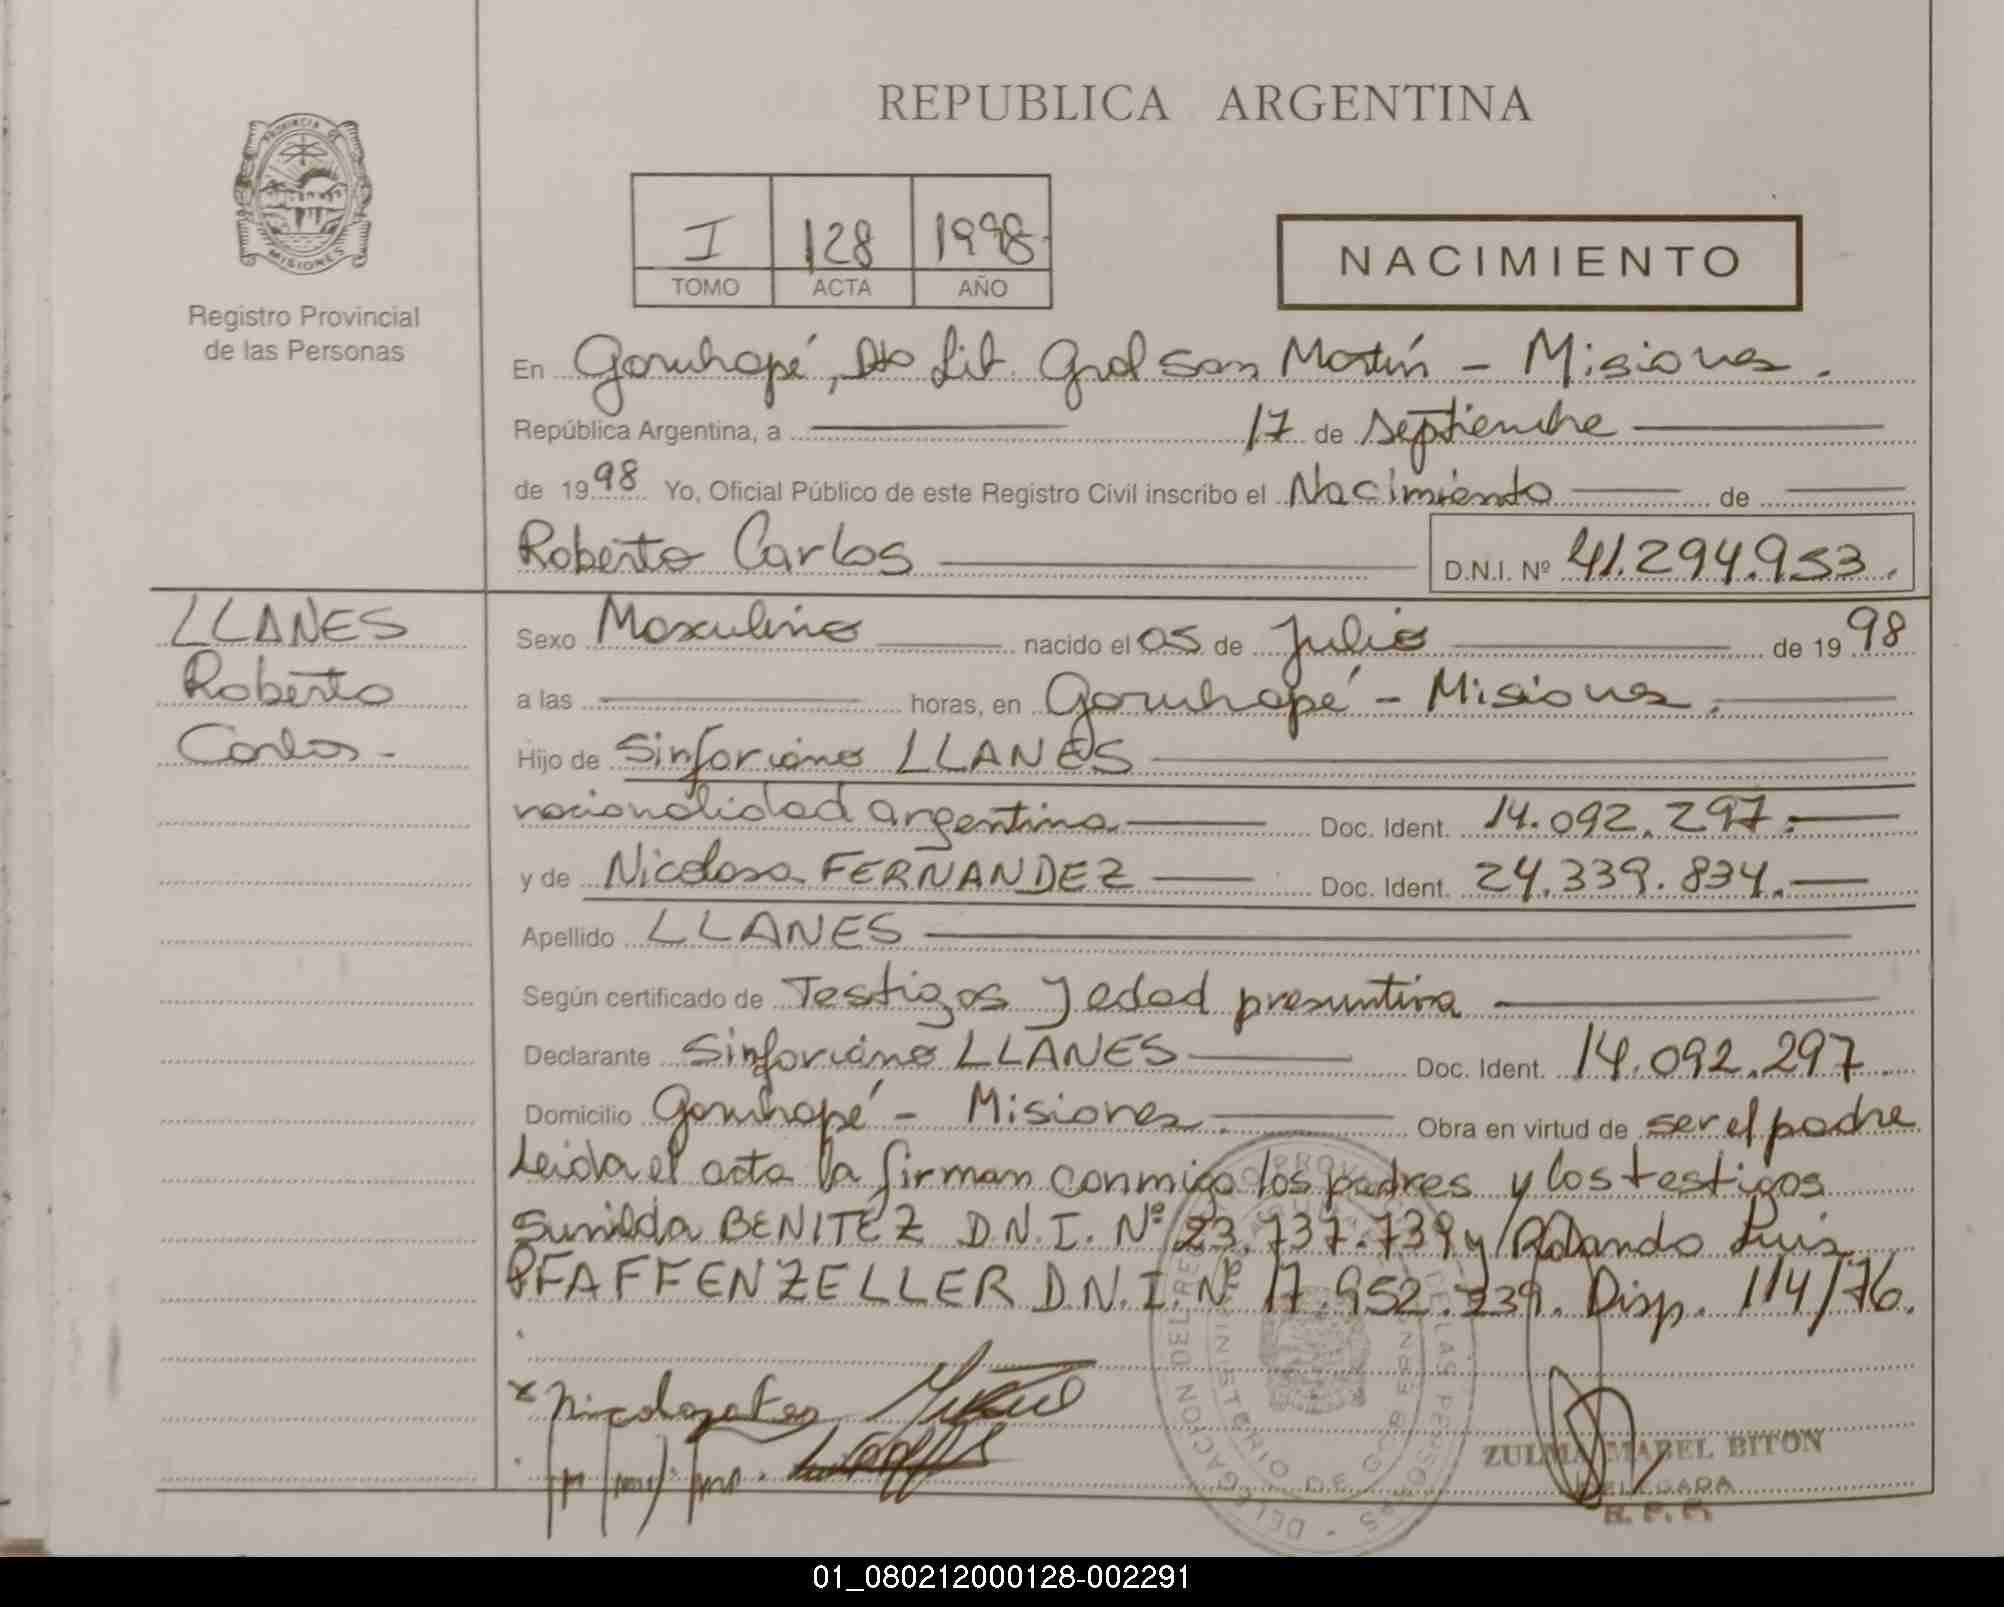 REPUBLICA ARGENTINA
PROVINCIA DE
MISIONES
Registro Provincial
de las Personas
I 128 1998
TOMO ACTA AÑO
NACIMIENTO
En Garuhapé, Dto Lib. Gral San Martín - Misiones.
República Argentina, a 17 de septiembre
de 1998 Yo, Oficial Público de este Registro Civil inscribo el Nacimiento de
Roberto Carlos D.N.I. Nº 41.294.953.
LLANES
Roberto
Carlos-
Sexo Masculino nacido el 05 de Julio de 1998
a las horas, en Garuhapé - Misiones.
Hijo de Sinforiano LLANES
nacionalidad argentina Doc. Ident. 14.092.297.-
y de Nicolasa FERNANDEZ Doc. Ident. 24.339.834.-
Apellido LLANES
Según certificado de Testigos y edad presuntiva
Declarante Sinforiano LLANES Doc. Ident. 14.092.297
Domicilio Garuhapé - Misiones. Obra en virtud de ser el padre
Leida el acta la firman conmigo los padres y los testigos
Sunilda BENITEZ D.N.I. Nº 23.737.739 y Rolando Luis
PFAFFENZELLER D.N.I. Nº 17.952.239. Disp. 114/76.
ZULMA MABEL BITON
DELEGADA
R. P. P.
01_080212000128-002291